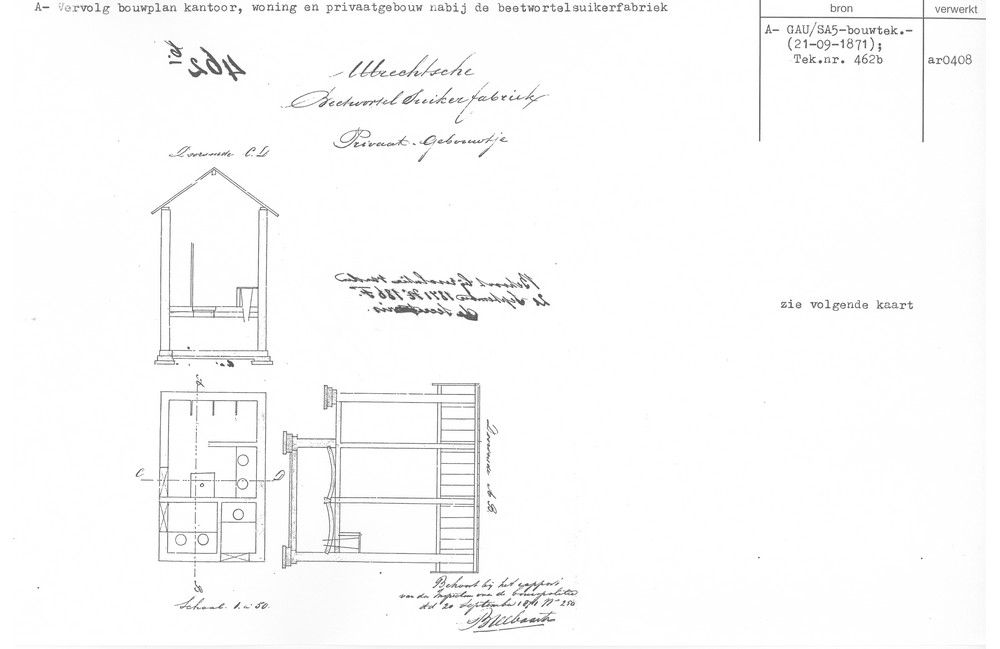 A- Vervolg bouwplan kantoor, woning en privaatgebouw nabij de beetwortelsuikerfabriek
bron
verwerkt
A- GAU/SA5-bouwtek.-
(21-09-1871);
Tek.nr. 462b
ar0408
462
Utrechtsche
Beetwortel Suikerfabriek
Privaat-Gebouwtje
Doorsnede C.D
Behoort bij resolutie van den
21 September 1871 Nº 186 F.
zie volgende kaart
A
C
D
B
Doorsnede A.B.
Schaal 1 à 50.
Behoort bij het rapport
van den Inspecteur van de bouwpolitie
dd 20 September 1871 Nº 250